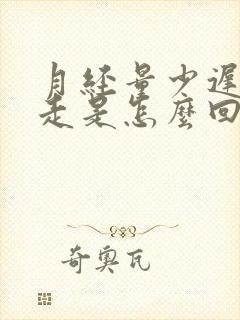 月经量少遲
走是怎麼回
奇奥瓦